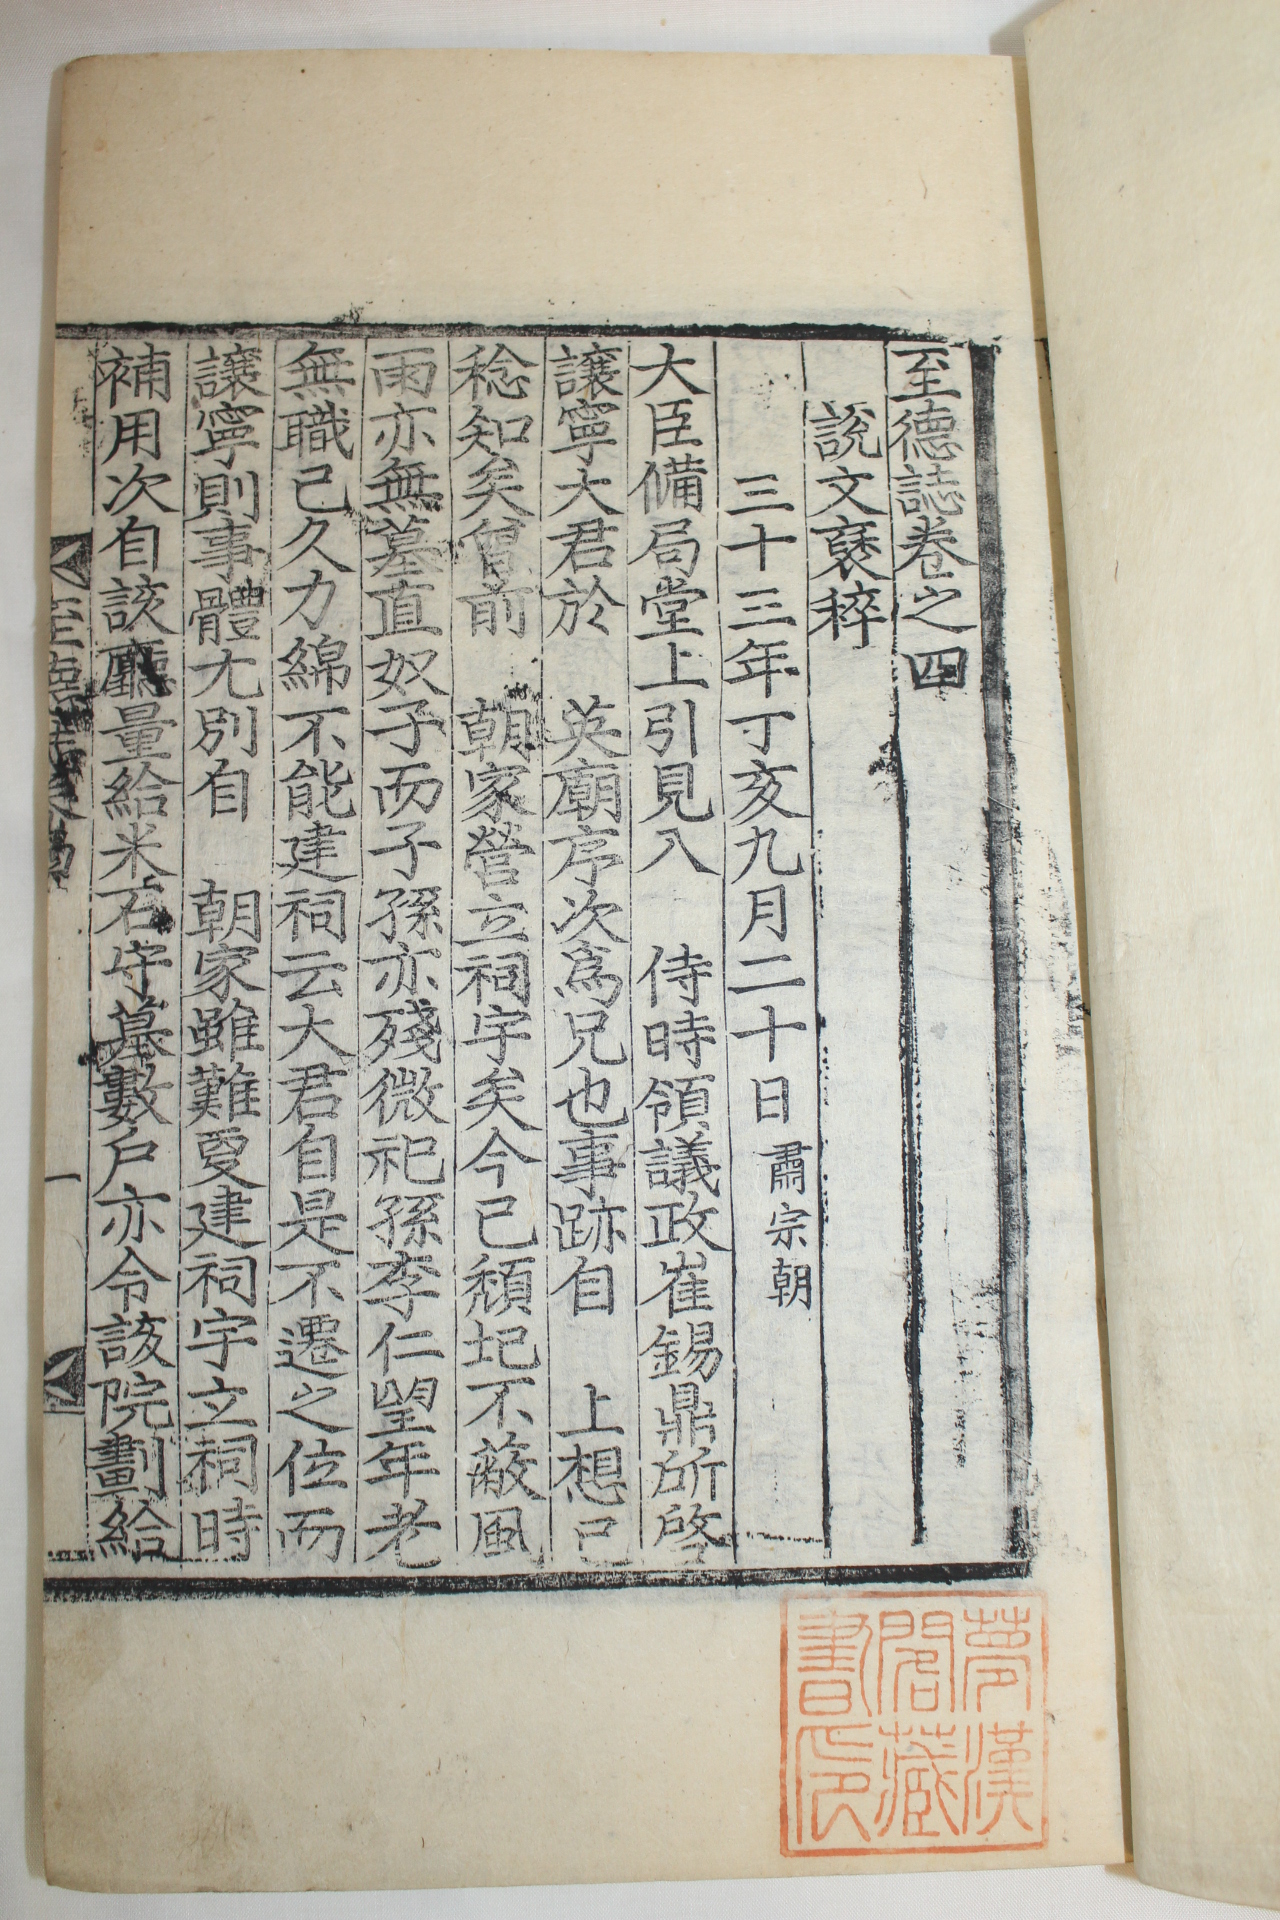 至德誌卷之四
說文裒稡
三十三年丁亥九月二十日肅宗朝
大臣備局堂上引見入 侍時領議政崔錫鼎所啓
讓寧大君於 英廟序次爲兄也事跡自 上想已
稔知矣曾前 朝家營立祠宇矣今已頹圮不蔽風
雨亦無墓直奴子而子孫亦殘微祀孫李仁望年老
無職已久力綿不能建祠云大君自是不遷之位而
讓寧則事體尤別自 朝家雖難更建祠宇立祠時
補用次自該廳量給米石守墓數戶亦令該院劃給
至德誌卷四
一
夢漢
閣藏
書印